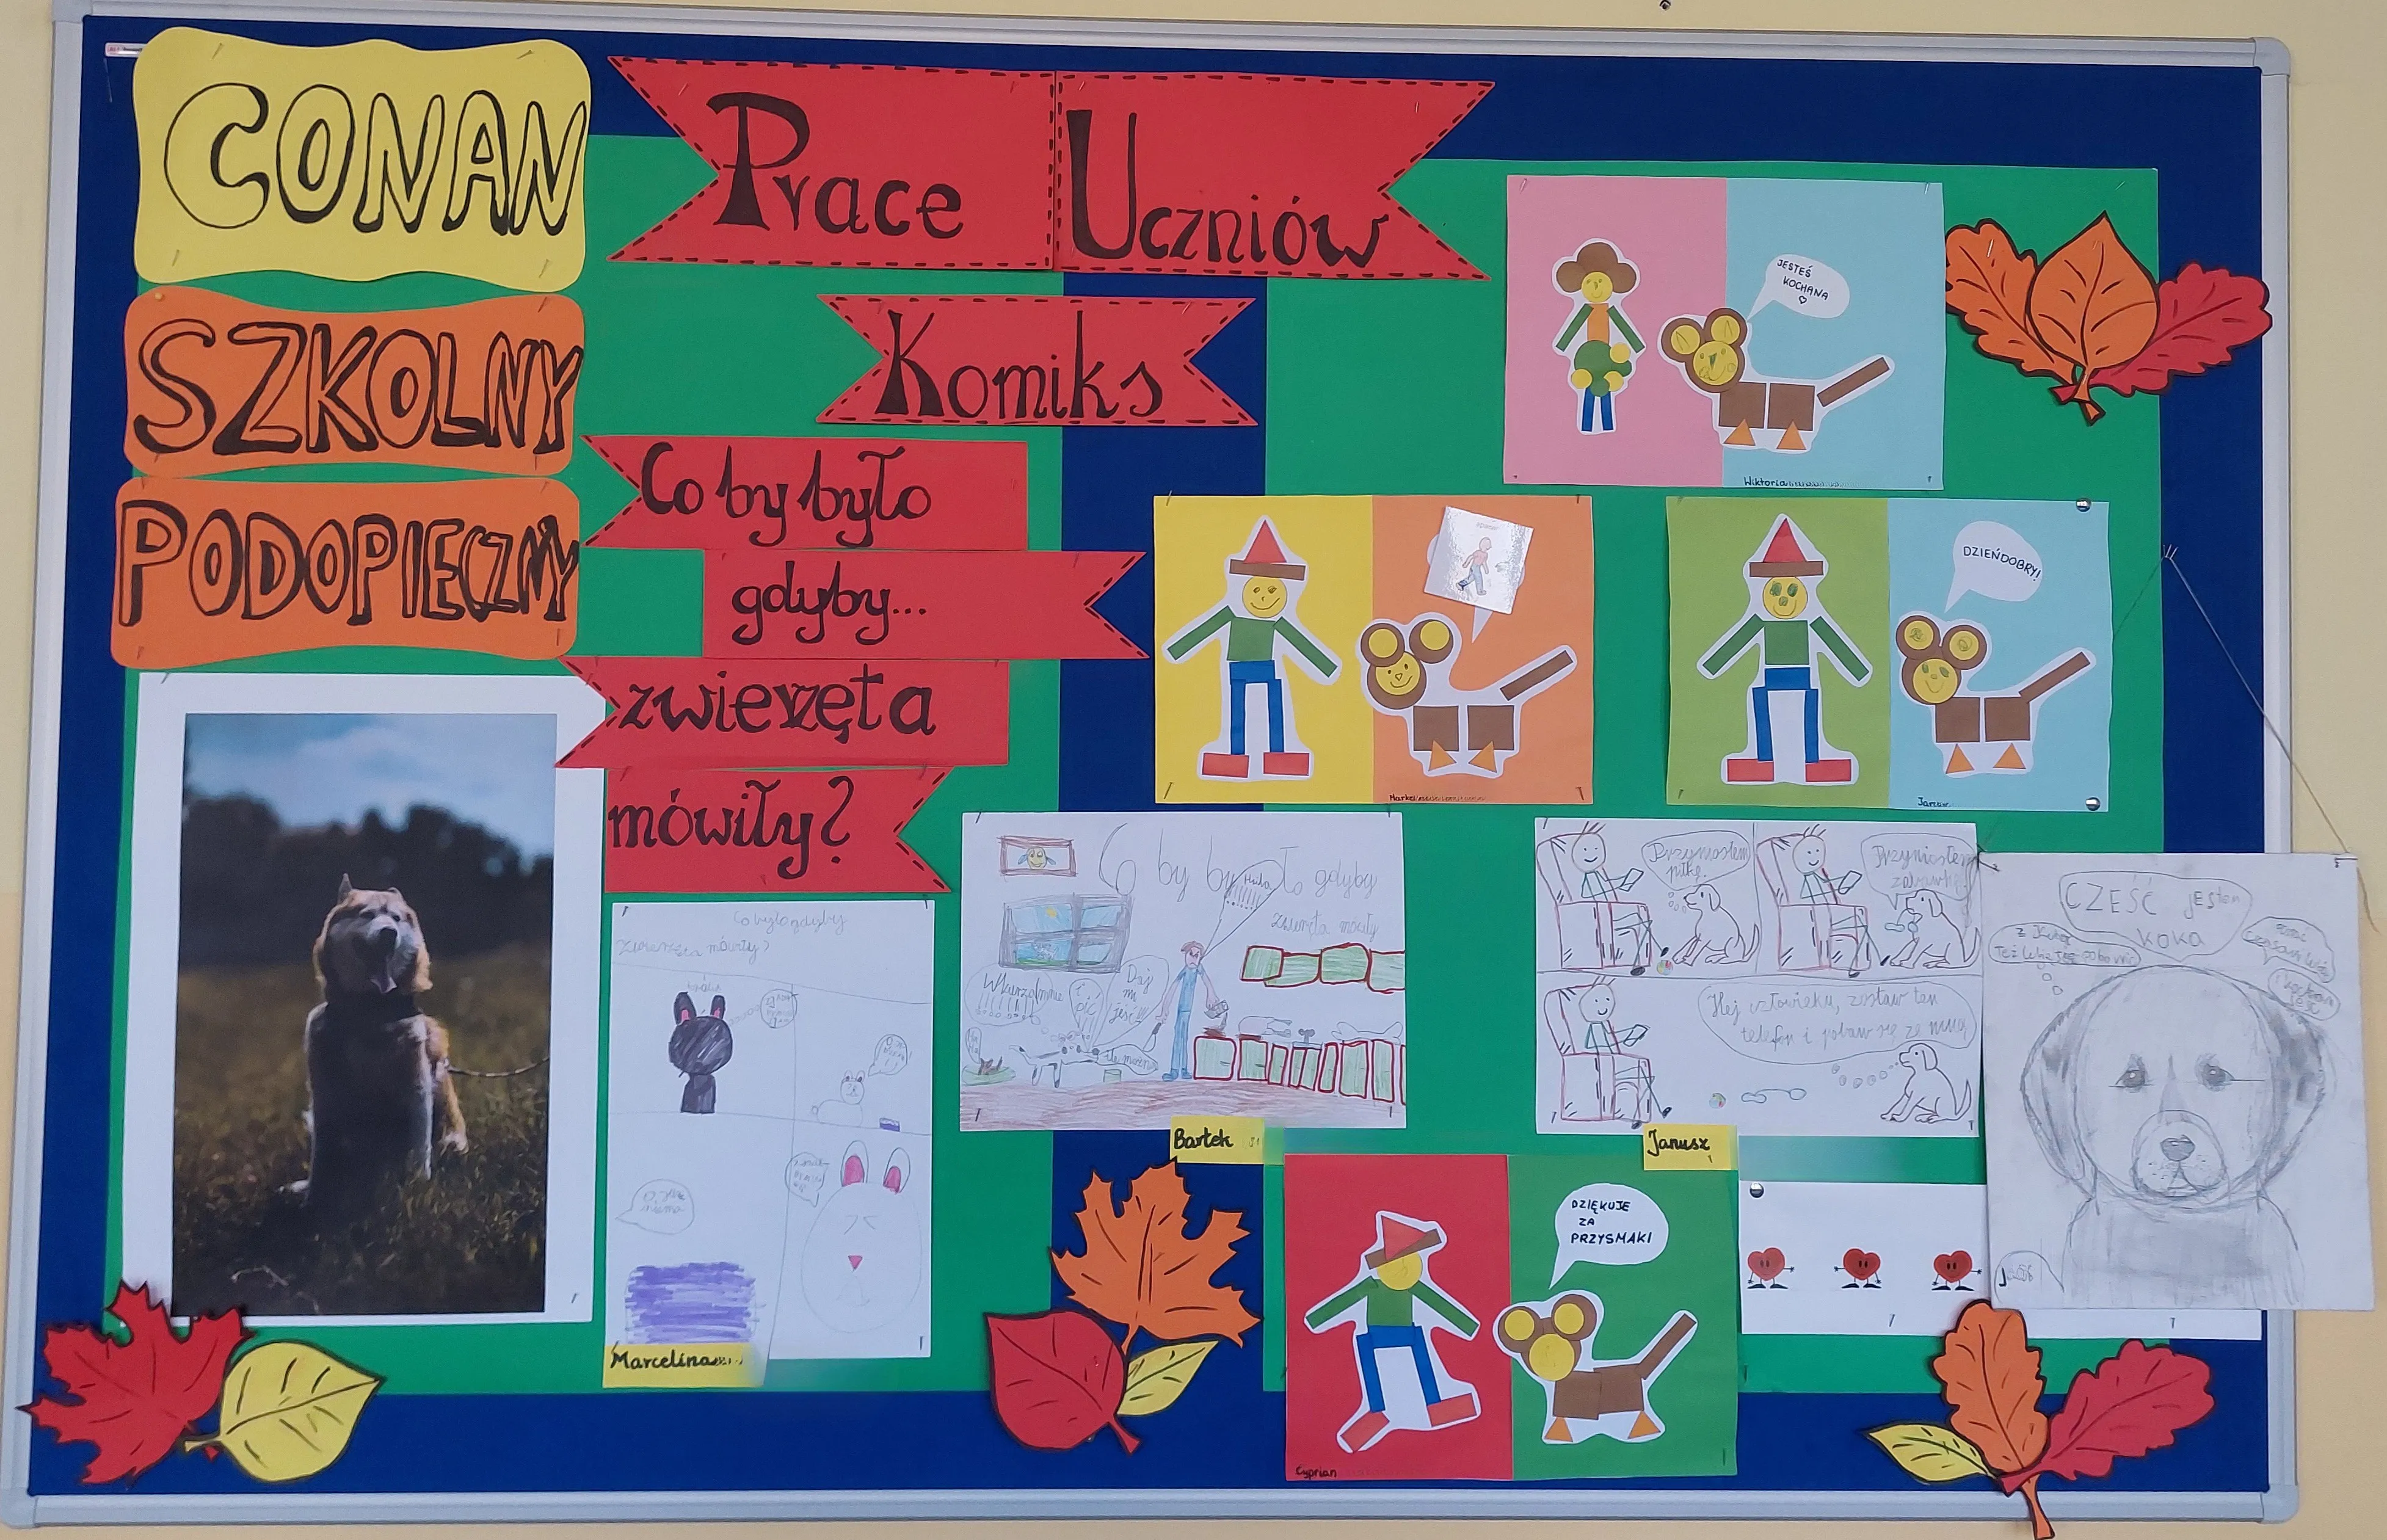 CONAN
SZKOLNY
PODOPIECZNY
Prace Uczniów
Komiks
Co by było
gdyby...
zwierzęta
mówiły?
JESTEŚ
KOCHANA
Wiktoria
spacer
DZIEŃDOBRY!
Co by było gdyby
zwierzęta mówiły?
Marcelina
Co by było gdyby
zwierzęta mówiły
Daj
mi
jeść!!!
Bartek
Przyniosłem
piłkę.
Przyniosłem
zabawkę.
Hej człowieku, zostaw ten
telefon i pobaw się ze mną
Janusz
CZEŚĆ jestem
koka
DZIĘKUJE
ZA
PRZYSMAKI
Cyprian